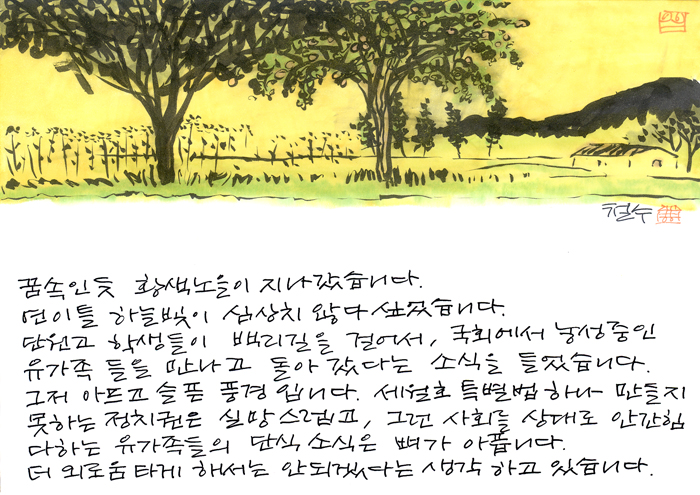 철수
꿈속인듯 황색노을이 지나갔습니다.
연이틀 하늘빛이 심상치 않다 싶었습니다.
단원고 학생들이 백리길을 걸어서, 국회에서 농성중인
유가족 들을 만나고 돌아 갔다는 소식을 들었습니다.
그저 아프고 슬픈 풍경 입니다. 세월호 특별법 하나 만들지
못하는 정치권은 실망스럽고, 그런 사회를 상대로 안간힘
다하는 유가족들의 단식 소식은 뼈가 아픕니다.
더 외로움 타게 해서는 안되겠다는 생각 하고 있습니다.